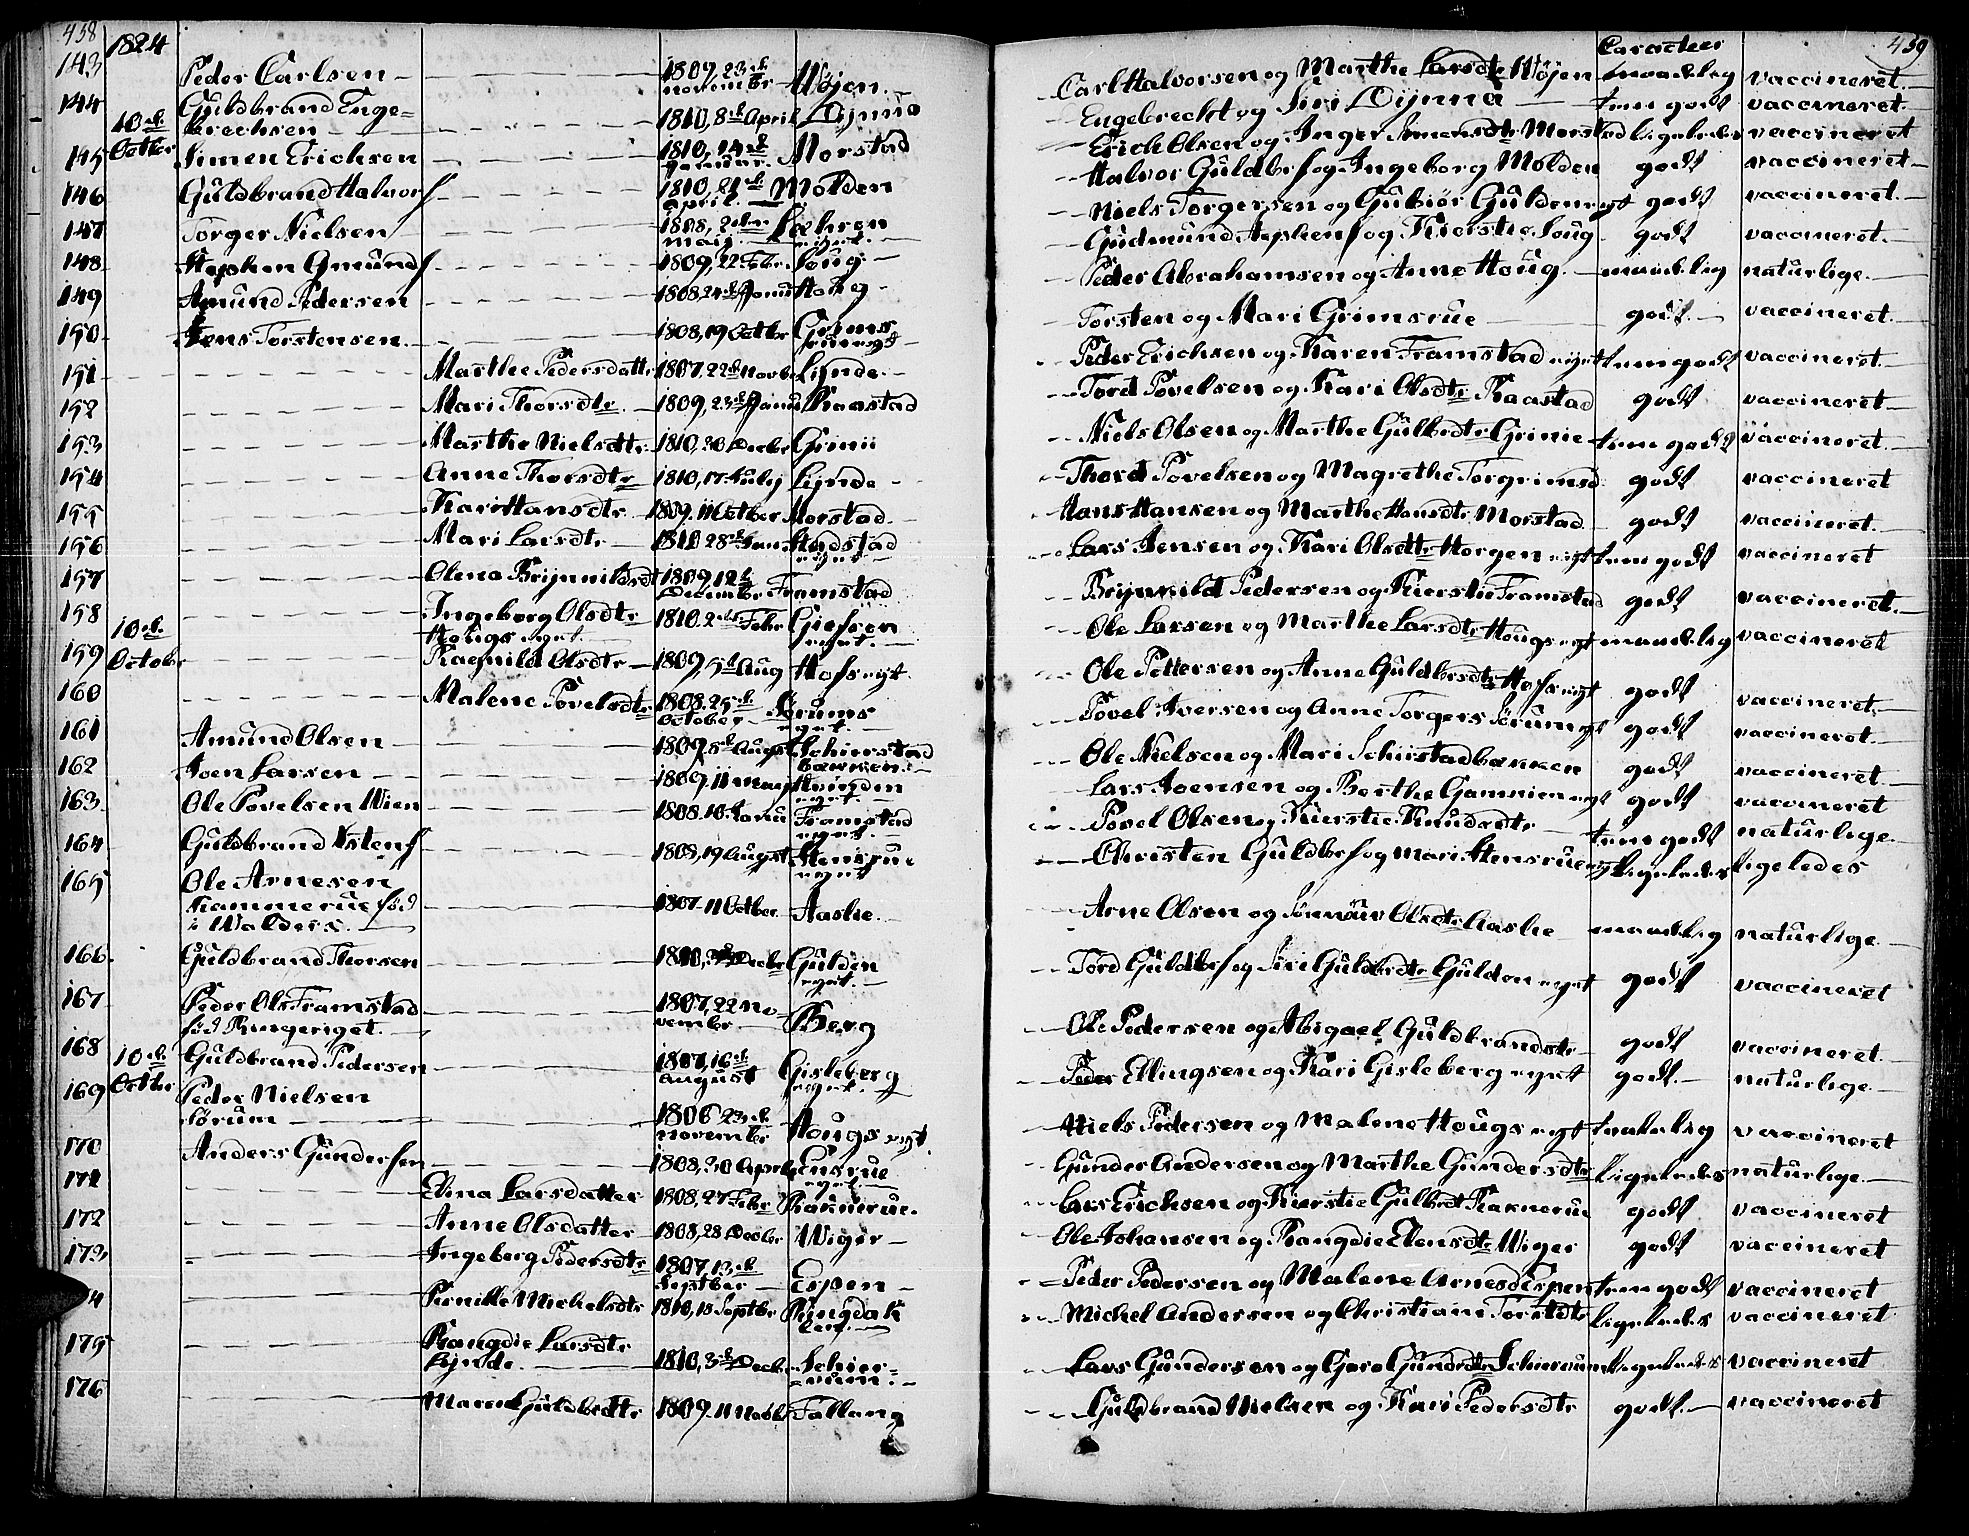 458
1824
143 Peder Carlsen 1809, 23de november Höjen
144 Guldbrand Enge=
brechsen 1810, 8de April Dÿnna
10de Octber
145 Simen Erichsen 1810, 14de Januar Morstad
146 Guldbrand Halvors 1810, 21de april Molden
147 Torger Nielsen 1808, 2den maij Löhren eiget
148 Stephen Gmunds 1809, 22 Febr. Houg
149 Amund Pedersen 1808, 24de Janu Houg
150 Jens Torstensen 1808, 19 Octbr Grims
rueeigt
151 Marthe Pedersdattr 1807, 22de Novbr Lÿnde
152 Mari Thorsdtr 1809, 23de Janu Raastad
153 Marthe Nielsdtr 1810, 30 Decbr Grinii
154 Anne Thorsdtr 1810, 17 Julij Lÿnde
155 Kari Hansdtr 1809, 11 Octber Morstad
156 Mari Larsdtr 1810 28de Janu Hadstad eignt
157 Olena Brijnnildsdt 1809, 12te Decembr Framstad
158 Ingeborg Olsdtr
Hougs eget 1810 2den Febr Giefsen eget
10de Octobr
159 Ragnild Olsdtr 1809, 5te Aug Hofs egt
160 Malene Povelsdtr 1808, 25de October Sörums eget
161 Amund Olsen 1809, 5te Augst Schierstad
backen
162 Joen Larsen 1809, 11 maij Hvinden eget
163 Ole Povelsen Wien 1808, 10 Janu Framstad eget
164 Guldbrand Ostens 1808, 19 Augst Stensrue egnt
165 Ole Arnesen
Rammerue föd
i Walders 1807 11 Octber Aaslie
166 Guldbrand Thorsen 1810, Decbr Gulden eget
167 Peder Ols Framstad
föd Ringeriget 1807, 22 No
vembr Berg
168 10de Octber Guldbrand Pedersen 1807, 16de August Gisleberg eget
169 Peder Nielsen
Sörum 1806 23de novembr Hougs egt
170 Anders Gundersen 1808, 30 April Ensrue eget
171 Elina Larsdatter 1808, 27 Febr Raknerue
172 Anne Olsdatter 1808, 28 Decbr Wiger
173 Ingeberg Pedersdtr 1807, 13de Septber Espen
4 Pernille Michelsdtr 1810, 15 Septbr Ringdak
len
175 Rangdie Larsdtr
Lÿnde 1810, 3de Decbr Schier=
rum
176 Maren Guldbrdtr 1809, 11 Novbr Tallang
459
Caracteer
Carl Halvorsen og Marthe Larsdtr Höjen maadelig vaccineret
Engebrecht og Siri Dÿnna tem godt vaccineret
Erich Olsen og Inger Simensdtr Morstad ligeledes vaccineret
Halvor Guldbrs og Ingeborg Molden godt vaccineret
Niels Torgersen og Gubiör Gulden egt godt vaccineret
Gudmund Stephens og Kierstie Houg godt vaccineret
Peder Abrahamsen og Anne Houg maadelig naturlige
Torsten og Mari Grimsrue godt vaccineret
Peder Erichsen og Karen Framstad eignt tem godt vaccineret
Tord Povelsen og Kari Olsdtr Raastad godt vaccineret
Niels Olsen og Marthe Gulbrdtr Grinie tem godt vaccineret
Thord Povelsen og Magrethe Torgrimsd godt vaccineret
Hans Hansen og Marthe Hansdtr Morstad godt vaccineret
Lars Jensen og Kari Olsdtr Horgen eigt tem godt vaccineret
Brijnnild Pedersen og Kierstie Framstad godt vaccineret
Ole Larsen og Marthe Larsdtr Hougs egt maadelig vaccineret
Ole Pettersen og Anne Guldbrsdtr Hofs egt godt vaccineret
Povel Iversen og Anne Torgers Sörum egt godt vaccineret
Ole Nielsen og Mari Schirstadbakken godt vaccineret
Lars Joensen og Berthe Gamnien egt godt vaccineret
Povel Olsen og Kierstie Knudsdtr tem godt naturlige
Christen Guldbrs og Mari Stensrue egt ligeledes ligeledes
Arne Olsen og Sönnöw Olsdtr Aaslie maadelig naturlige
Tord Guldbrs og Siri Guldbrdtr Gulden egnt godt vaccineret
Ole Pedersen og Abigael Guldbrandsdtr godt vaccineret
Peder Ellingsen og Kari Gisleberg eget godt naturlige
Niels Pedersen og Malene Hougs egt maadelig vaccineret
Gunder Andersen og Marthe Gundersdtr ligeledes naturlige
Lars Erichsen og Kierstie Gulbrdt Raknerue godt vaccineret
Ole Johansen og Rangdie Elensdtr Wiger godt vaccineret
Peder Pedersen og Malene Arnesd Espen tem godt vaccineret
Michel Andersen og Christiam Torstdtr ligeledes vaccineret
Lars Gundersen og Goro Gundrdtr Schierrum ligeledes vaccineret
Guldbrand Nielsen og Kari Pedersdtr godt vaccineret